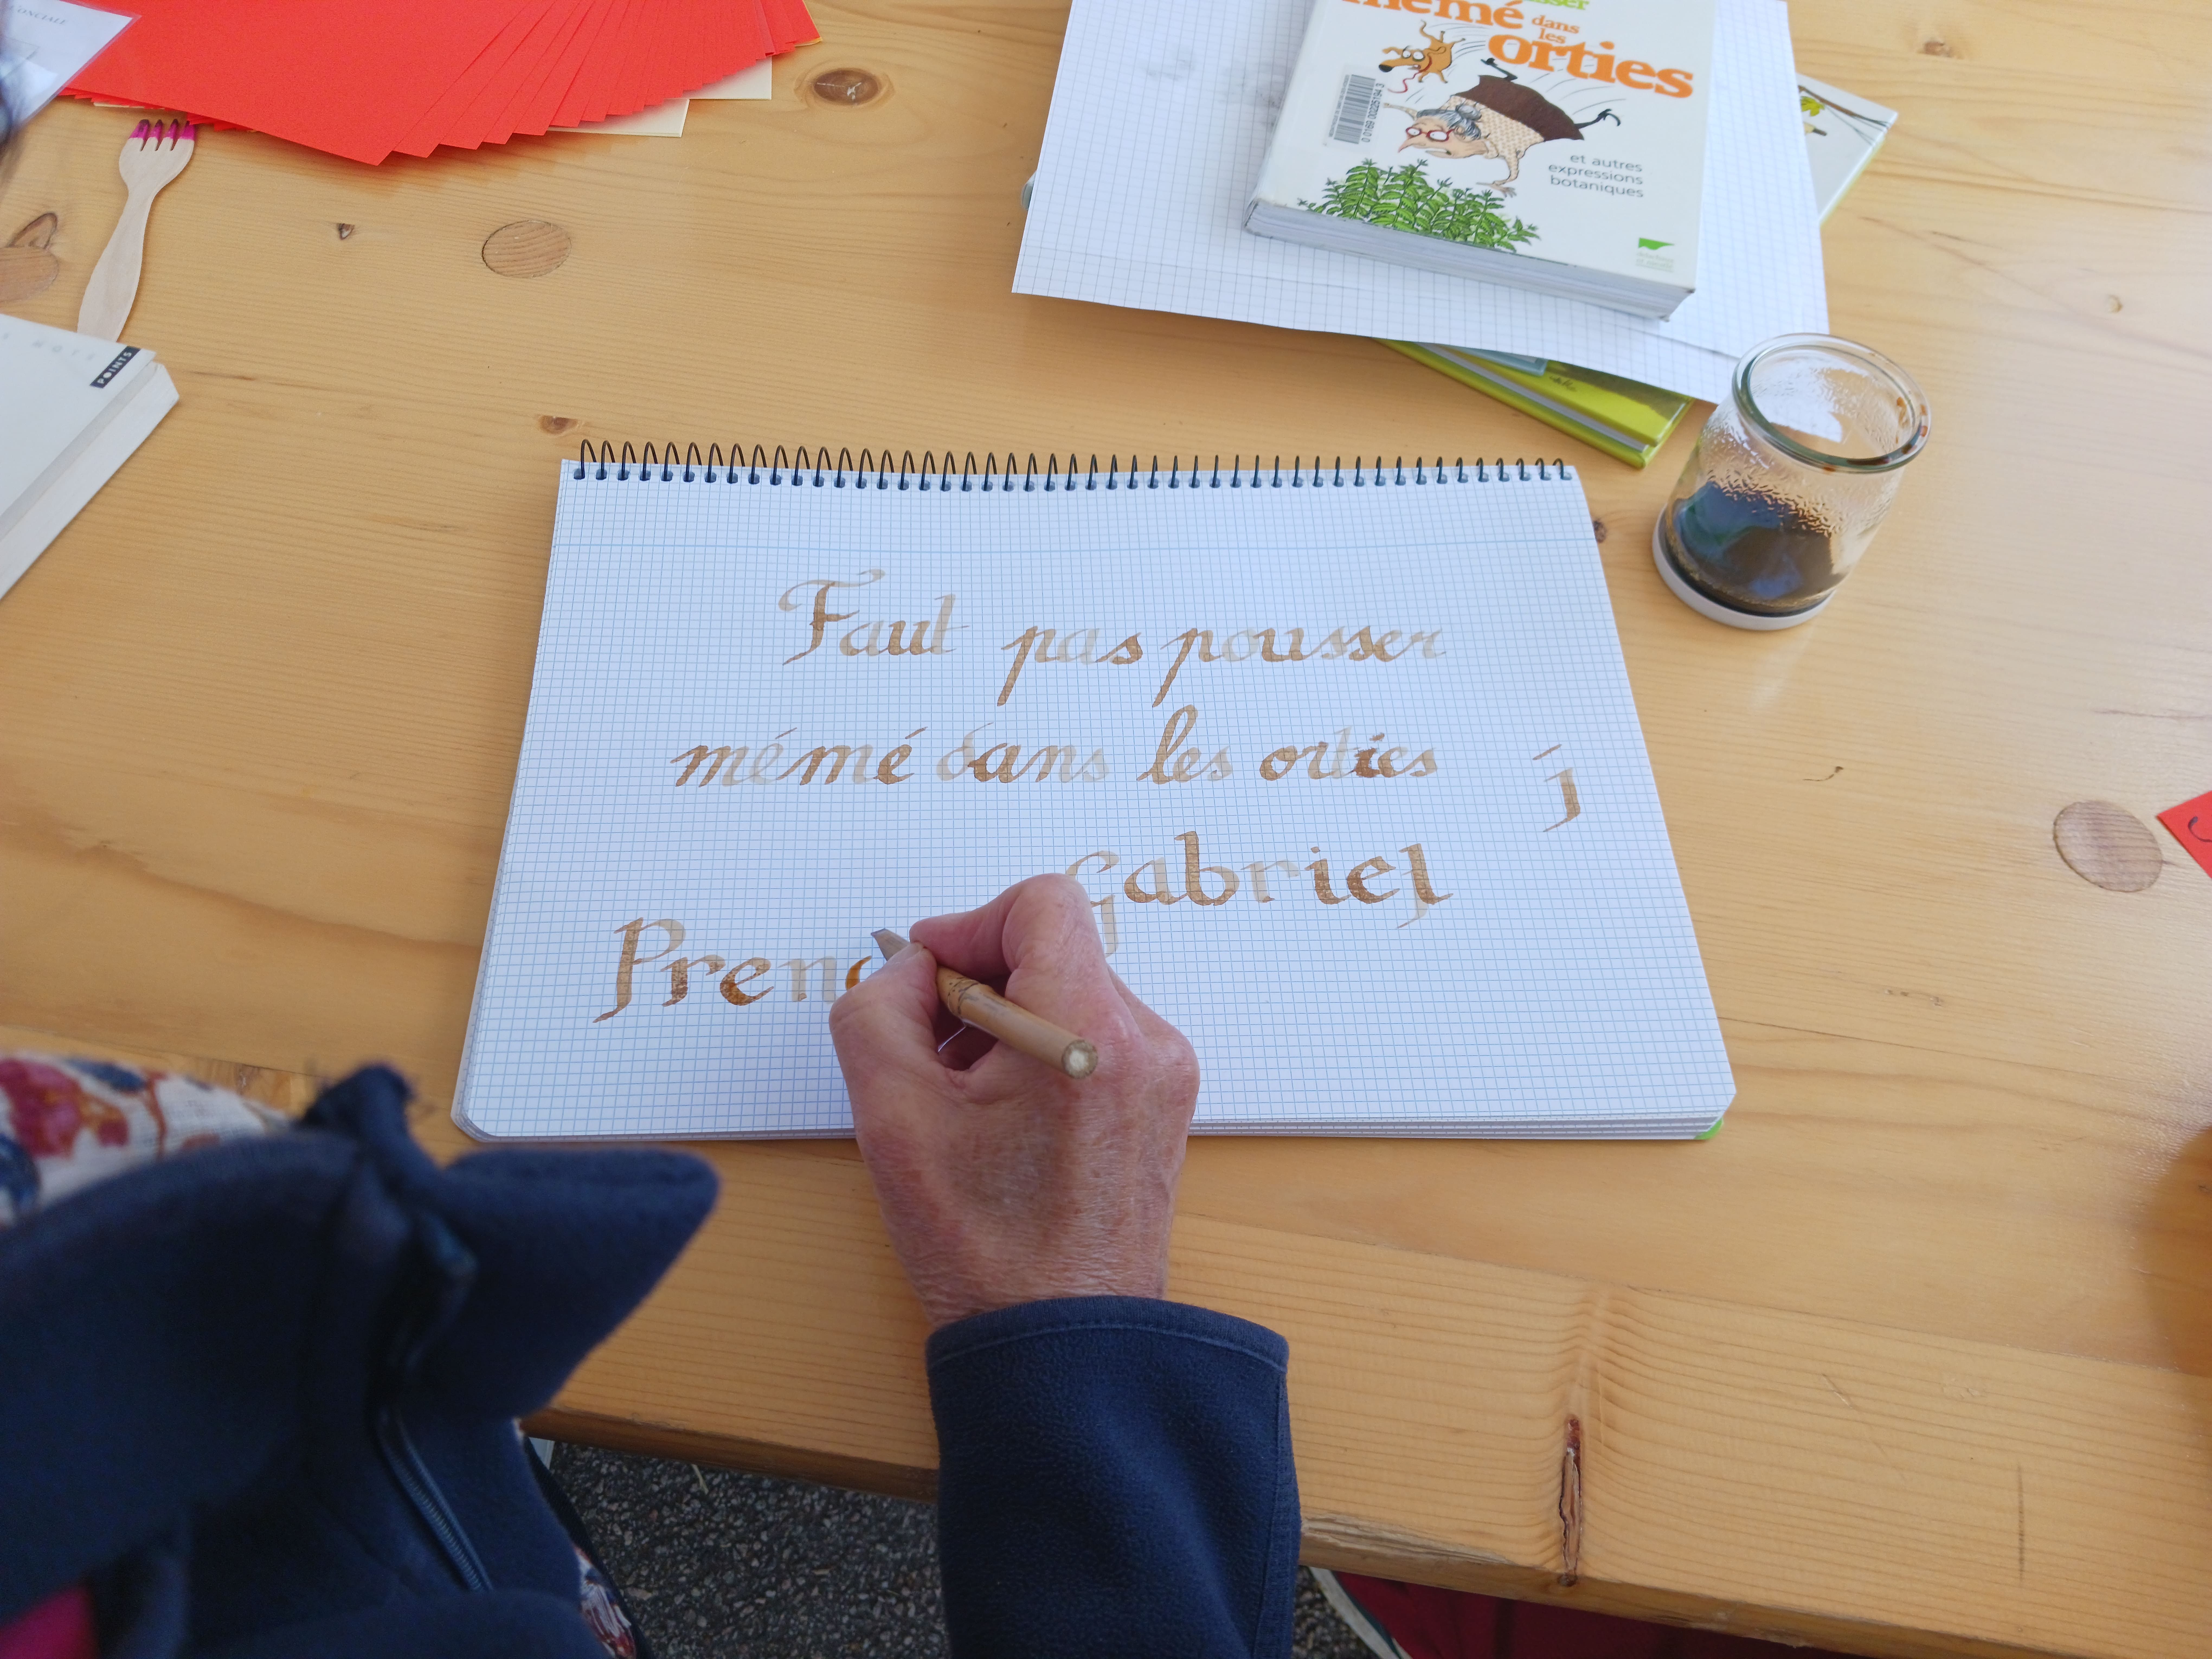 ONCIALE
mémé dans
les
orties
et autres
expressions
botaniques
0 0169 00225194 3
POINTS
Faut pas pousser
mémé dans les orties
j
Gabriel
Pren